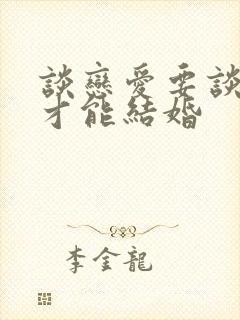 談戀愛要談
才能結婚
李金龍